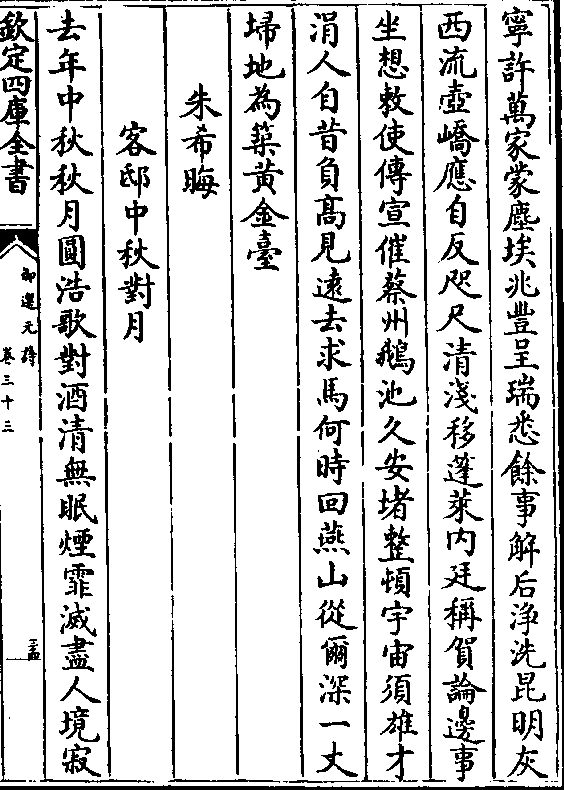 寧許萬家蒙塵埃兆豐呈瑞悉餘事解后淨洗昆明灰
西流壺嶠應自反咫尺清淺移蓬萊内廷稱賀論邊事
坐想敕使傳宣催蔡州鵝池久安堵整頓宇宙須雄才
涓人自昔負髙見逺去求馬何時回燕山從爾深一丈
埽地為築黄金臺
朱希晦
客邸中秋對月
去年中秋秋月圓浩歌對酒清無眠煙霏滅盡人境寂
欽定四庫全書
御選元詩
卷三十三